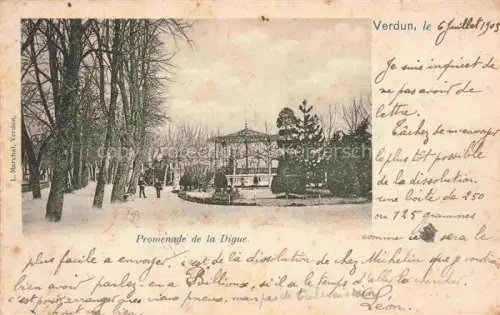 Verdun, le 6 Juillet 1903
Je suis inquiet de
ne pas avoir de
lettre.
Tâchez de m'envoyer
le plus tôt possible
de la dissolution
une boîte de 250
ou 125 grammes
comme ce sera le
L. Marchal, Verdun.
Promenade de la Digue.
plus facile a envoyer. c'est de la dissolution de chez Michelin que je voudrais
bien avoir parlez-en a Billioux, s'il a le temps d'aller la chercher
c'est pour arranger mes vieux pneux, mais pas de
Léon.